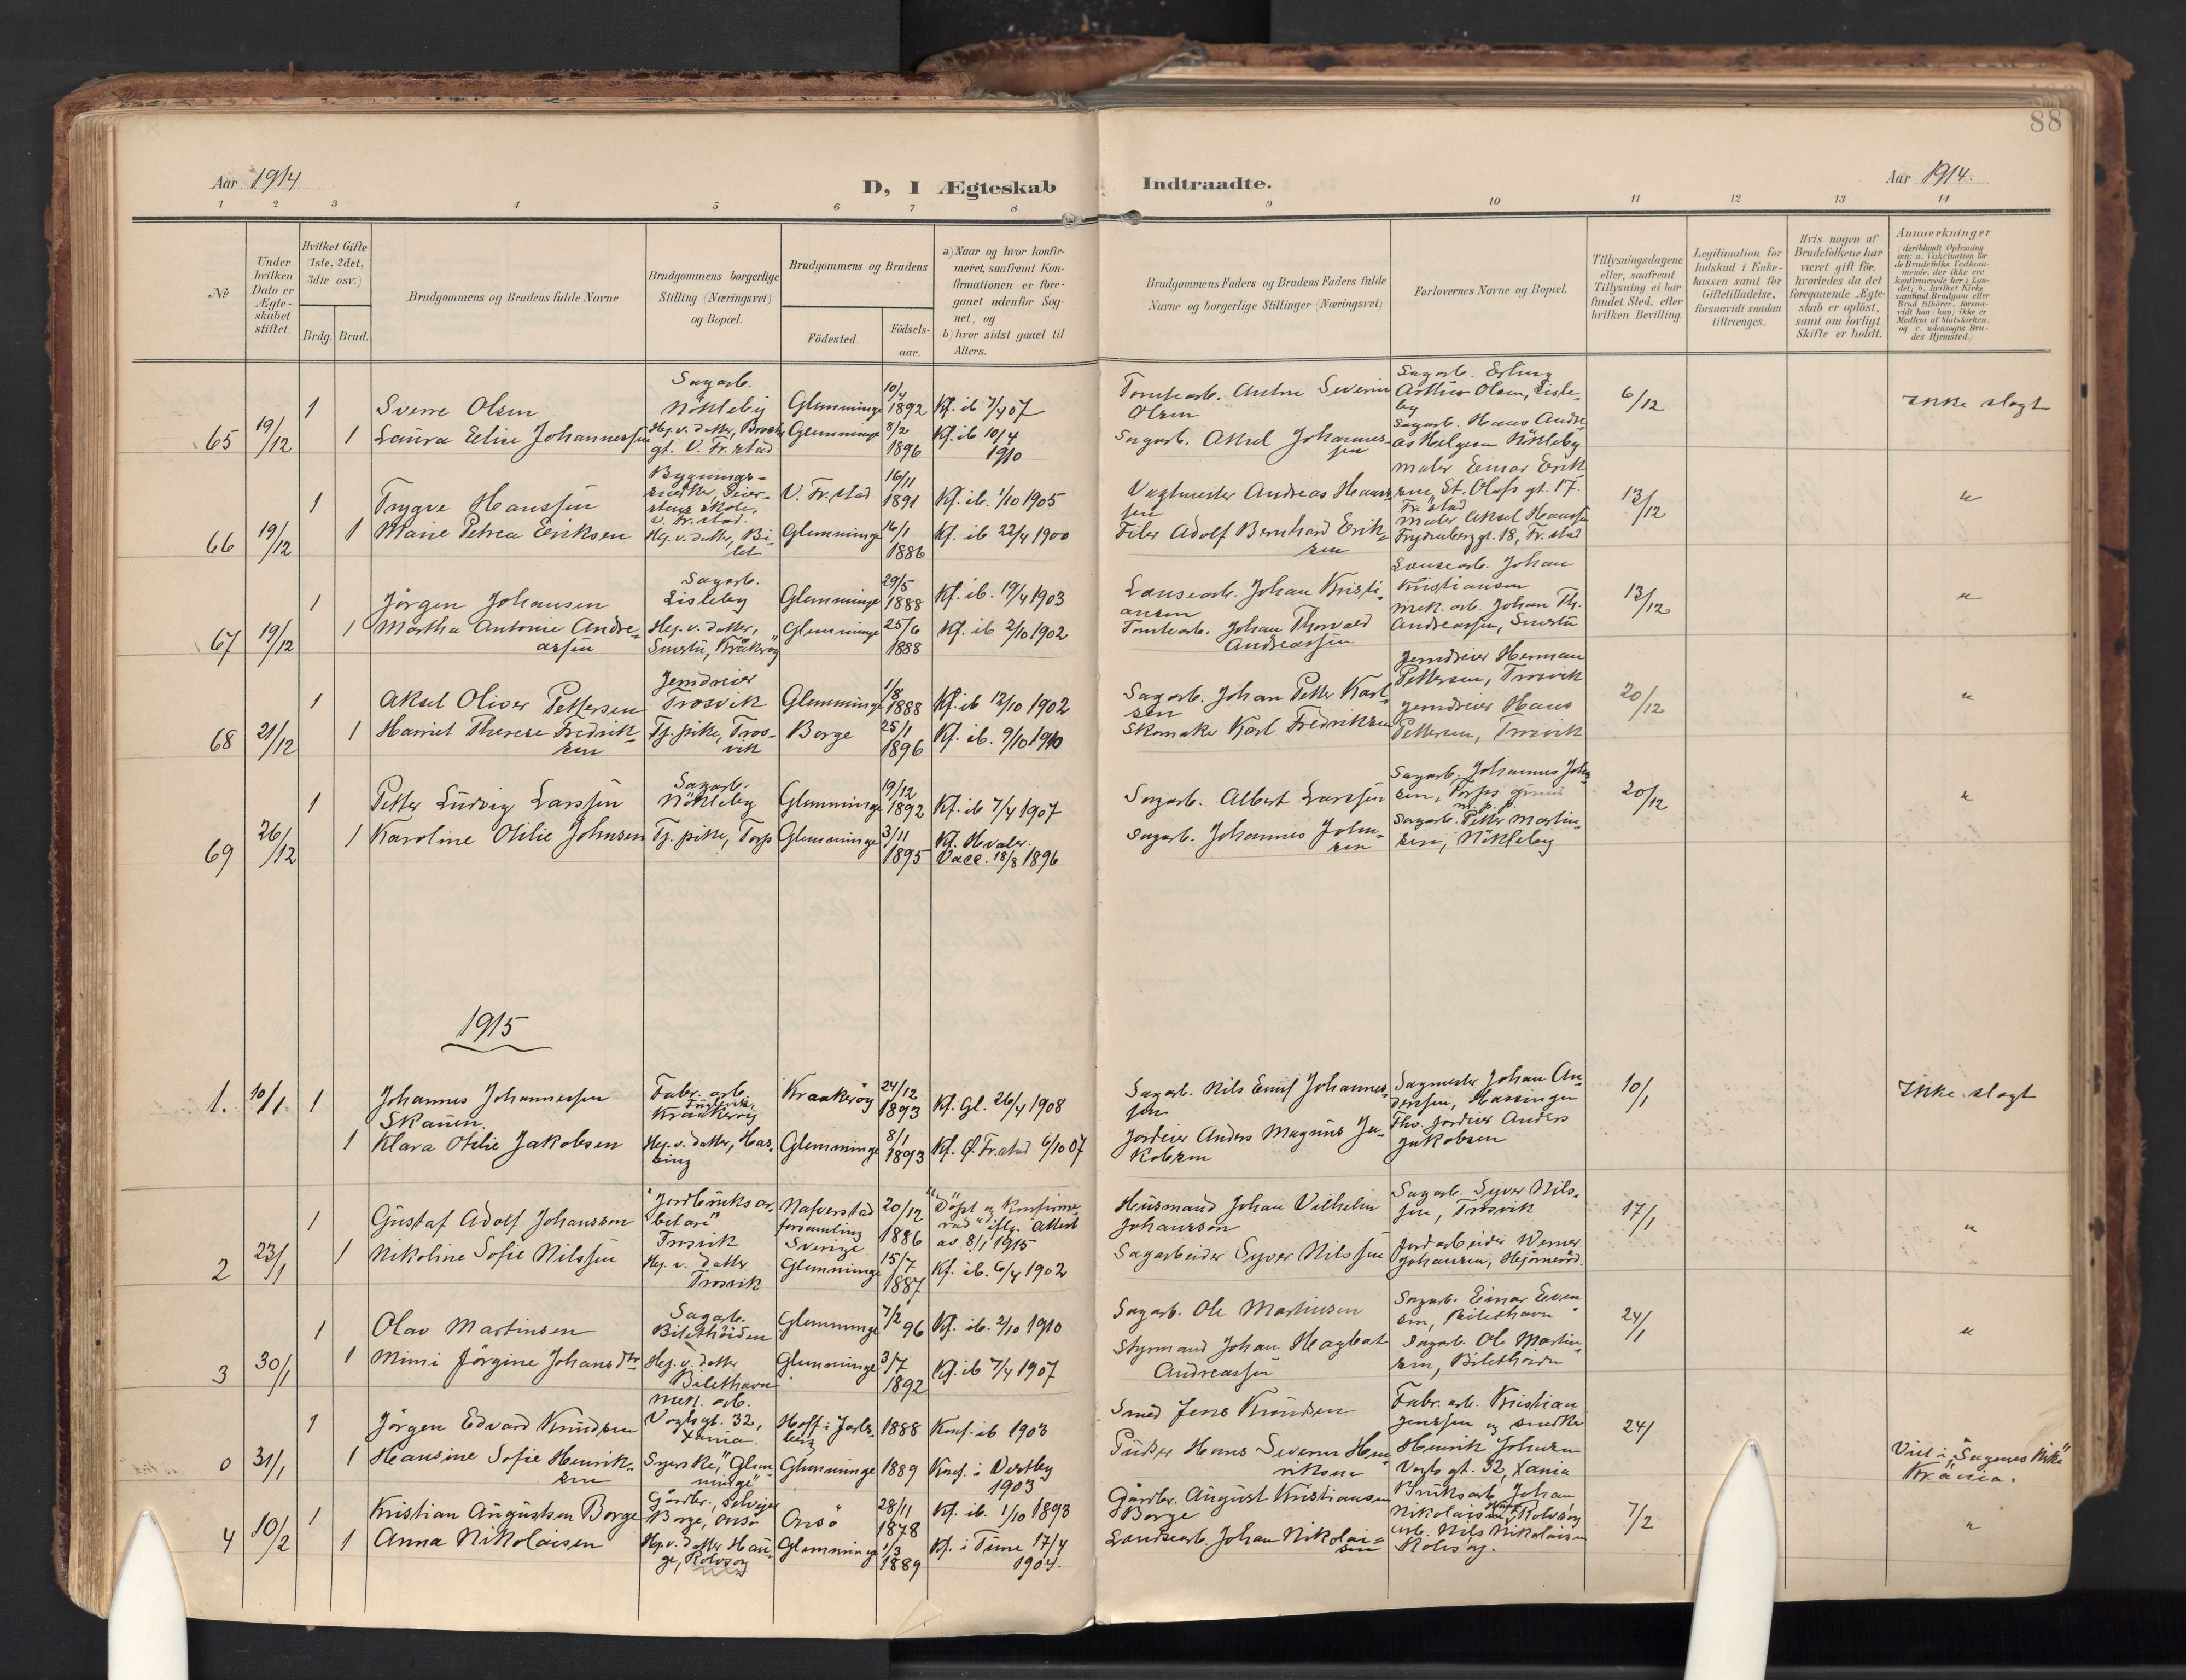 88
Aar 1914
D, I Ægteskab Indtraadte.
Aar 1914.
1 2 3 4 5 6 7 8 9 10 11 12 13 14
No
Under hvilken Dato er Ægteskabet stiftet.
Hvilket Gifte (1ste, 2det, 3die osv.)
Brdg. Brud.
Brudgommens og Brudens fulde Navne
Brudgommens borgerlige Stilling (Næringsvei) og Bopæl.
Brudgommens og Brudens
Födested.
Födsels-aar.
a) Naar og hvor konfir-
meret, saafremt Kon-
firmationen er fore-
gaaet udenfor Sog-
net, og
b) hvor sidst gaaet til
Alters.
Brudgommens Faders og Brudens Faders fulde
Navne og borgerlige Stillinger (Næringsvei)
Forlovernes Navne og Bopæl.
Tillysningsdagene
eller, saafremt
Tillysning ei har
fundet Sted, efter
hvilken Bevilling.
Legitimation for
Indskud i Enke-
kassen samt for
Giftetilladelse,
forsaavidt saadan
tiltrænges.
Hvis nogen af
Brudefolkene har
været gift för,
hvorledes da det
foregaaende Ægte-
skab er oplöst,
samt om lovligt
Skifte er holdt.
Anmærkninger
(deriblandt Oplysning
om: a. Vakcination for
de Brudefolks Vedkom-
mende, der ikke ere
konfirmerede her i Lan-
det; b. hvilket Kirke-
samfund Brudgom eller
Brud tilhörer, forsaa-
vidt han (hun) ikke er
Medlem af Statskirken,
og c. udensogns Bru-
des Hjemsted.)
65 19/12
1 Sverre Olsen
Sagarb. Nökleby
Glemminge 10/4 1892 Kf. ib 7/4 07
Tomtearb. Anton Severin Olsen
Sagarb. Erling Arthur Olsen, Lisleby
6/12
Ikke slægt
1 Laura Elise Johannessen
Hj. v. datter, gt. V. Fr.stad
Glemminge 8/2 1896 Kf. ib 10/4 1910
Sagarb. Aksel Johannessen
Sagarb. Hans Andreas Helgesen Nökleby
66 19/12
1 Trygve Hanssen
Bygningssnedker,
V. Fr.stad.
V. Fr.stad 16/11 1891 Kf. ib. 1/10 1905
Vagtmester Andreas Hanssen
Maler Einar Eriksen, St. Olafs gt. 17. Fr.stad
13/12
"
1 Marie Petrea Eriksen
Hj. v. datter, Bilet
Glemminge 16/1 1886 Kf. ib 22/4 1900
Filer Adolf Bernhard Eriksen
Maler Aksel Hanssen Frydenberggt. 18, Fr.stad
67 19/12
1 Jörgen Johansen
Sagarb. Lisleby
Glemminge 29/5 1888 Kf. ib. 19/4 1903
Lansearb. Johan Kristiansen
Lansearb. Johan Kristiansen
13/12
"
1 Martha Antonie Andreassen
Hj. v. datter, Smertu, Kråkerøy
Glemminge 25/6 1888 Kf. ib 2/10 1902
Tomtearb. Johan Thorvald Andreassen
Mek. arb. Johan Th. Andreassen, Smertu
68 21/12
1 Aksel Oliver Pettersen
Jerndreier Trosvik
Glemminge 1/8 1888 Kf. ib 12/10 1902
Sagarb. Johan Petter Karlsen
Jerndreier Herman Pettersen, Trosvik
20/12
"
1 Harriet Therese Fredriksen
Tj. pike, Trosvik
Borge 25/1 1896 Kf. ib. 9/10 1910
Skomaker Karl Fredriksen
Jerndreier Hans Pettersen, Trosvik
69 26/12
1 Petter Ludvig Larssen
Sagarb. Nökleby
Glemminge 19/12 1892 Kf. ib 7/4 1907
Sagarb. Albert Larssen
Sagarb. Johannes Johnsen, Torps
m. p. p.
20/12
"
1 Karoline Otilie Johnsen
Tj. pike, Torp
Glemminge 3/11 1895 Kf. Hvaler. Vacc. 18/8 1896
Sagarb. Johannes Johnsen
Sagarb. Petter Martinsen, Nökleby
1915
1. 10/1
1 Johannes Johannessen Skauen.
Fabr. arb. Kraakeröy
Kraakeröy 24/12 1893 Kf. Gl. 26/4 1908
Sagarb. Nils Emil Johannessen
Sagmester Johan Andersen, Hassingen
10/1
Ikke slægt
1 Klara Otelie Jakobsen
Hj. v. datter, Hassing
Glemminge 8/1 1893 Kf. Ø. Fr.stad 6/10 07
Jordeier Anders Magnus Jakobsen
Thv. Jordeier Anders Jakobsen
2 23/1
1 Gustaf Adolf Johansson
"Jordbruksarbetare" Trosvik
Nafverstad forsamling Sverige 20/12 1886
"Döpt og Konfirmerad" iflg. attest av 8/1 1915
Husmand Johan Vilhelm Johansson
Sagarb. Syver Nilssen, Trosvik
17/1
"
1 Nikoline Sofie Nilssen
Hj. v. datter Trosvik
Glemminge 15/7 1887 Kf. ib. 6/4 1902
Sagarbeider Syver Nilssen
Jordarbeider Werner Johansen, Hjörneröd.
3 30/1
1 Olav Martinsen
Sagarb. Bilethöiden
Glemminge 7/2 96 Kf. ib. 2/10 1910
Sagarb. Ole Martinsen
Sagarb. Einar Evensen, Bilethavn
24/1
"
1 Mimi Jörgine Johansdtr
Hj. v. datter Bilethavn
Glemminge 3/7 1892 Kf. ib 7/4 1907
Styrmand Johan Hagbart Andreassen
Sagarb. Ole Martinsen, Bilethöiden
0 31/1
1 Jörgen Edvard Knudsen
Mek. arb. Vogtsgt. 32, Xania.
Hoff i Jarlsberg 1888 Konf. ib 1903
Smed Jens Knudsen
Fabr. arb. Kristian Jenssen og snedker
24/
1 Hansine Sofie Henriksen
Syerske, "Glemminge"
Glemminge 1889 Konf. i Vestby 1903
Pudser Hans Severin Henriksen
Henrik Johnsen Vogts gt. 32, Xania
Viet i "Sagenes Kirke" Krania.
4 10/2
1 Kristian Augustsen Borge
Gårdbr., selveier Borge, Onsö
Onsö 28/11 1878 Kf. ib. 1/10 1893
Gårdbr. August Kristiansen Borge
Bruksarb. Johan Nikolaisen, Rolvsöy
7/2
"
1 Anna Nikolaisen
Hj. v. datter Hauge, Rolvsöy
Glemminge 1/3 1889 Kf. i Tune 17/4 1904.
Landsearb. Johan Nikolaisen
arb. Nils Nikolaisen Rolvsöy.